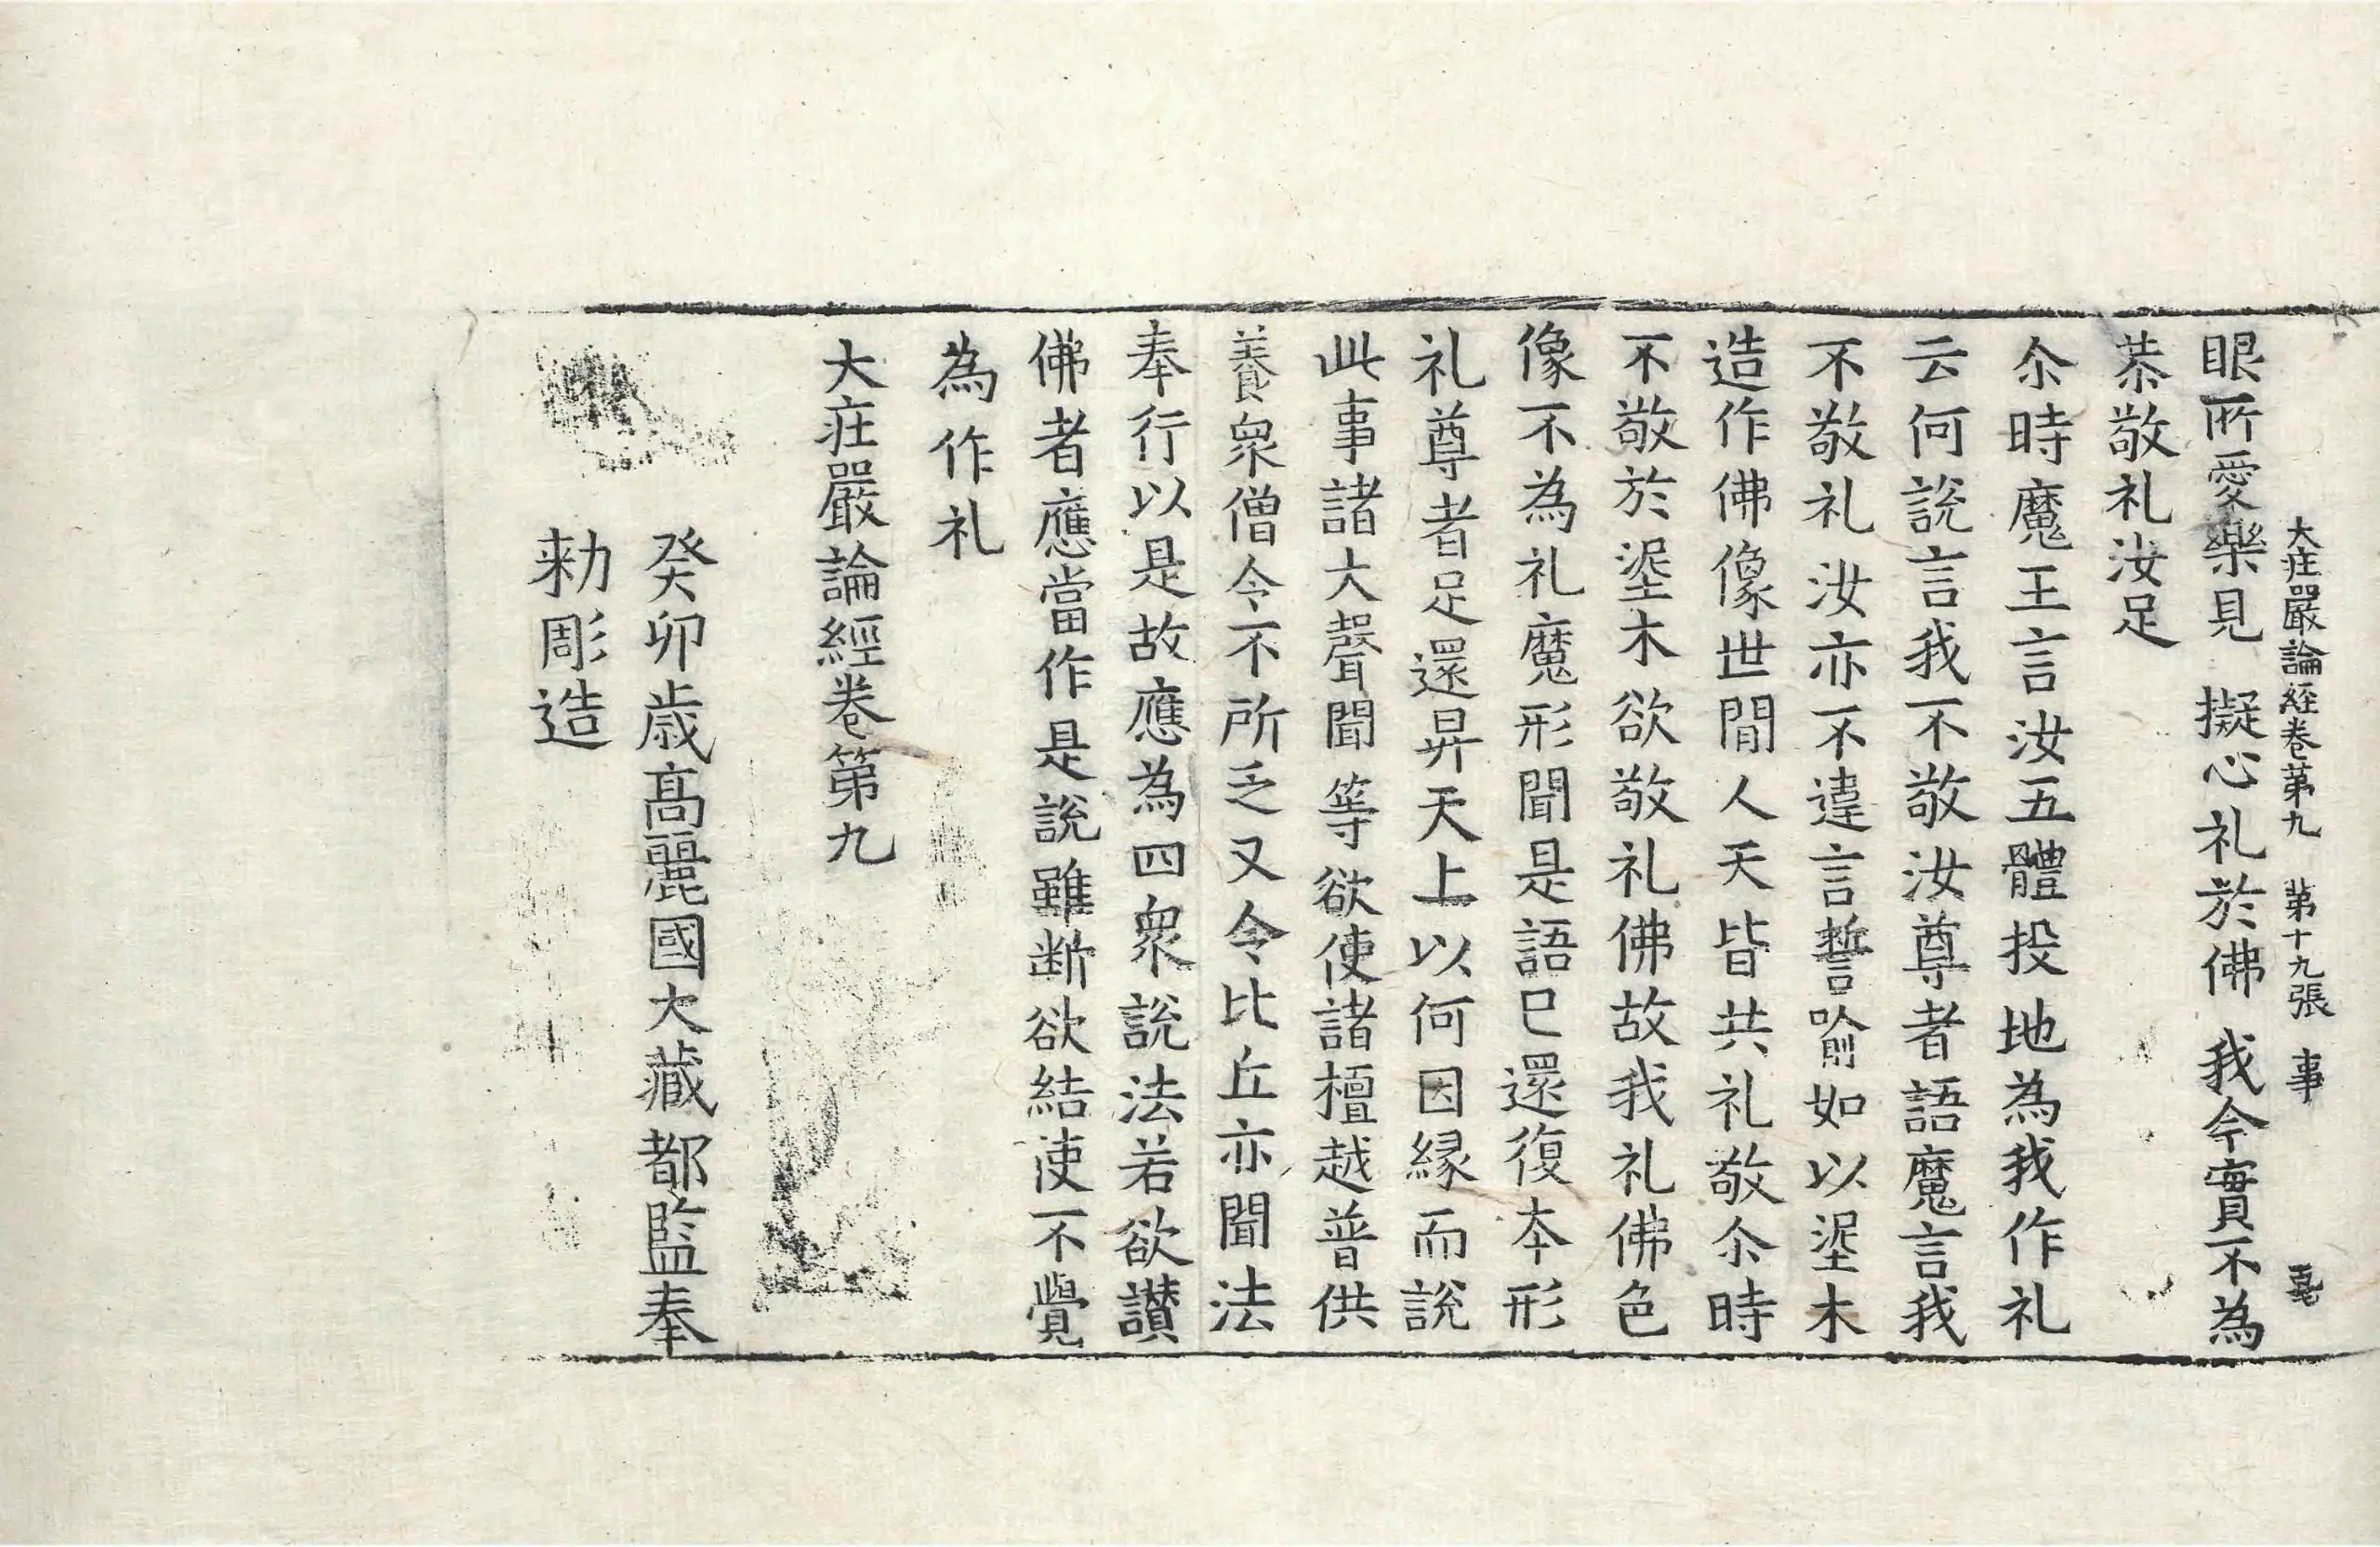 大庄嚴論經卷第九 第十九張 事
眼所愛樂見 擬心礼於佛 我今實不為
恭敬礼汝足
尒時魔王言汝五體投地為我作礼
云何說言我不敬汝尊者語魔言我
不敬礼汝亦不違言誓喻如以埿木
造作佛像世間人天皆共礼敬尒時
不敬於埿木欲敬礼佛故我礼佛色
像不為礼魔形聞是語已還復本形
礼尊者足還昇天上以何因緣而說
此事諸大聲聞等欲使諸檀越普供
養衆僧令不所乏又令比丘亦聞法
奉行以是故應為四衆說法若欲讃
佛者應當作是說雖断欲結使不覺
為作礼
大庄嚴論經卷第九
癸卯歲高麗國大藏都監奉
勑彫造